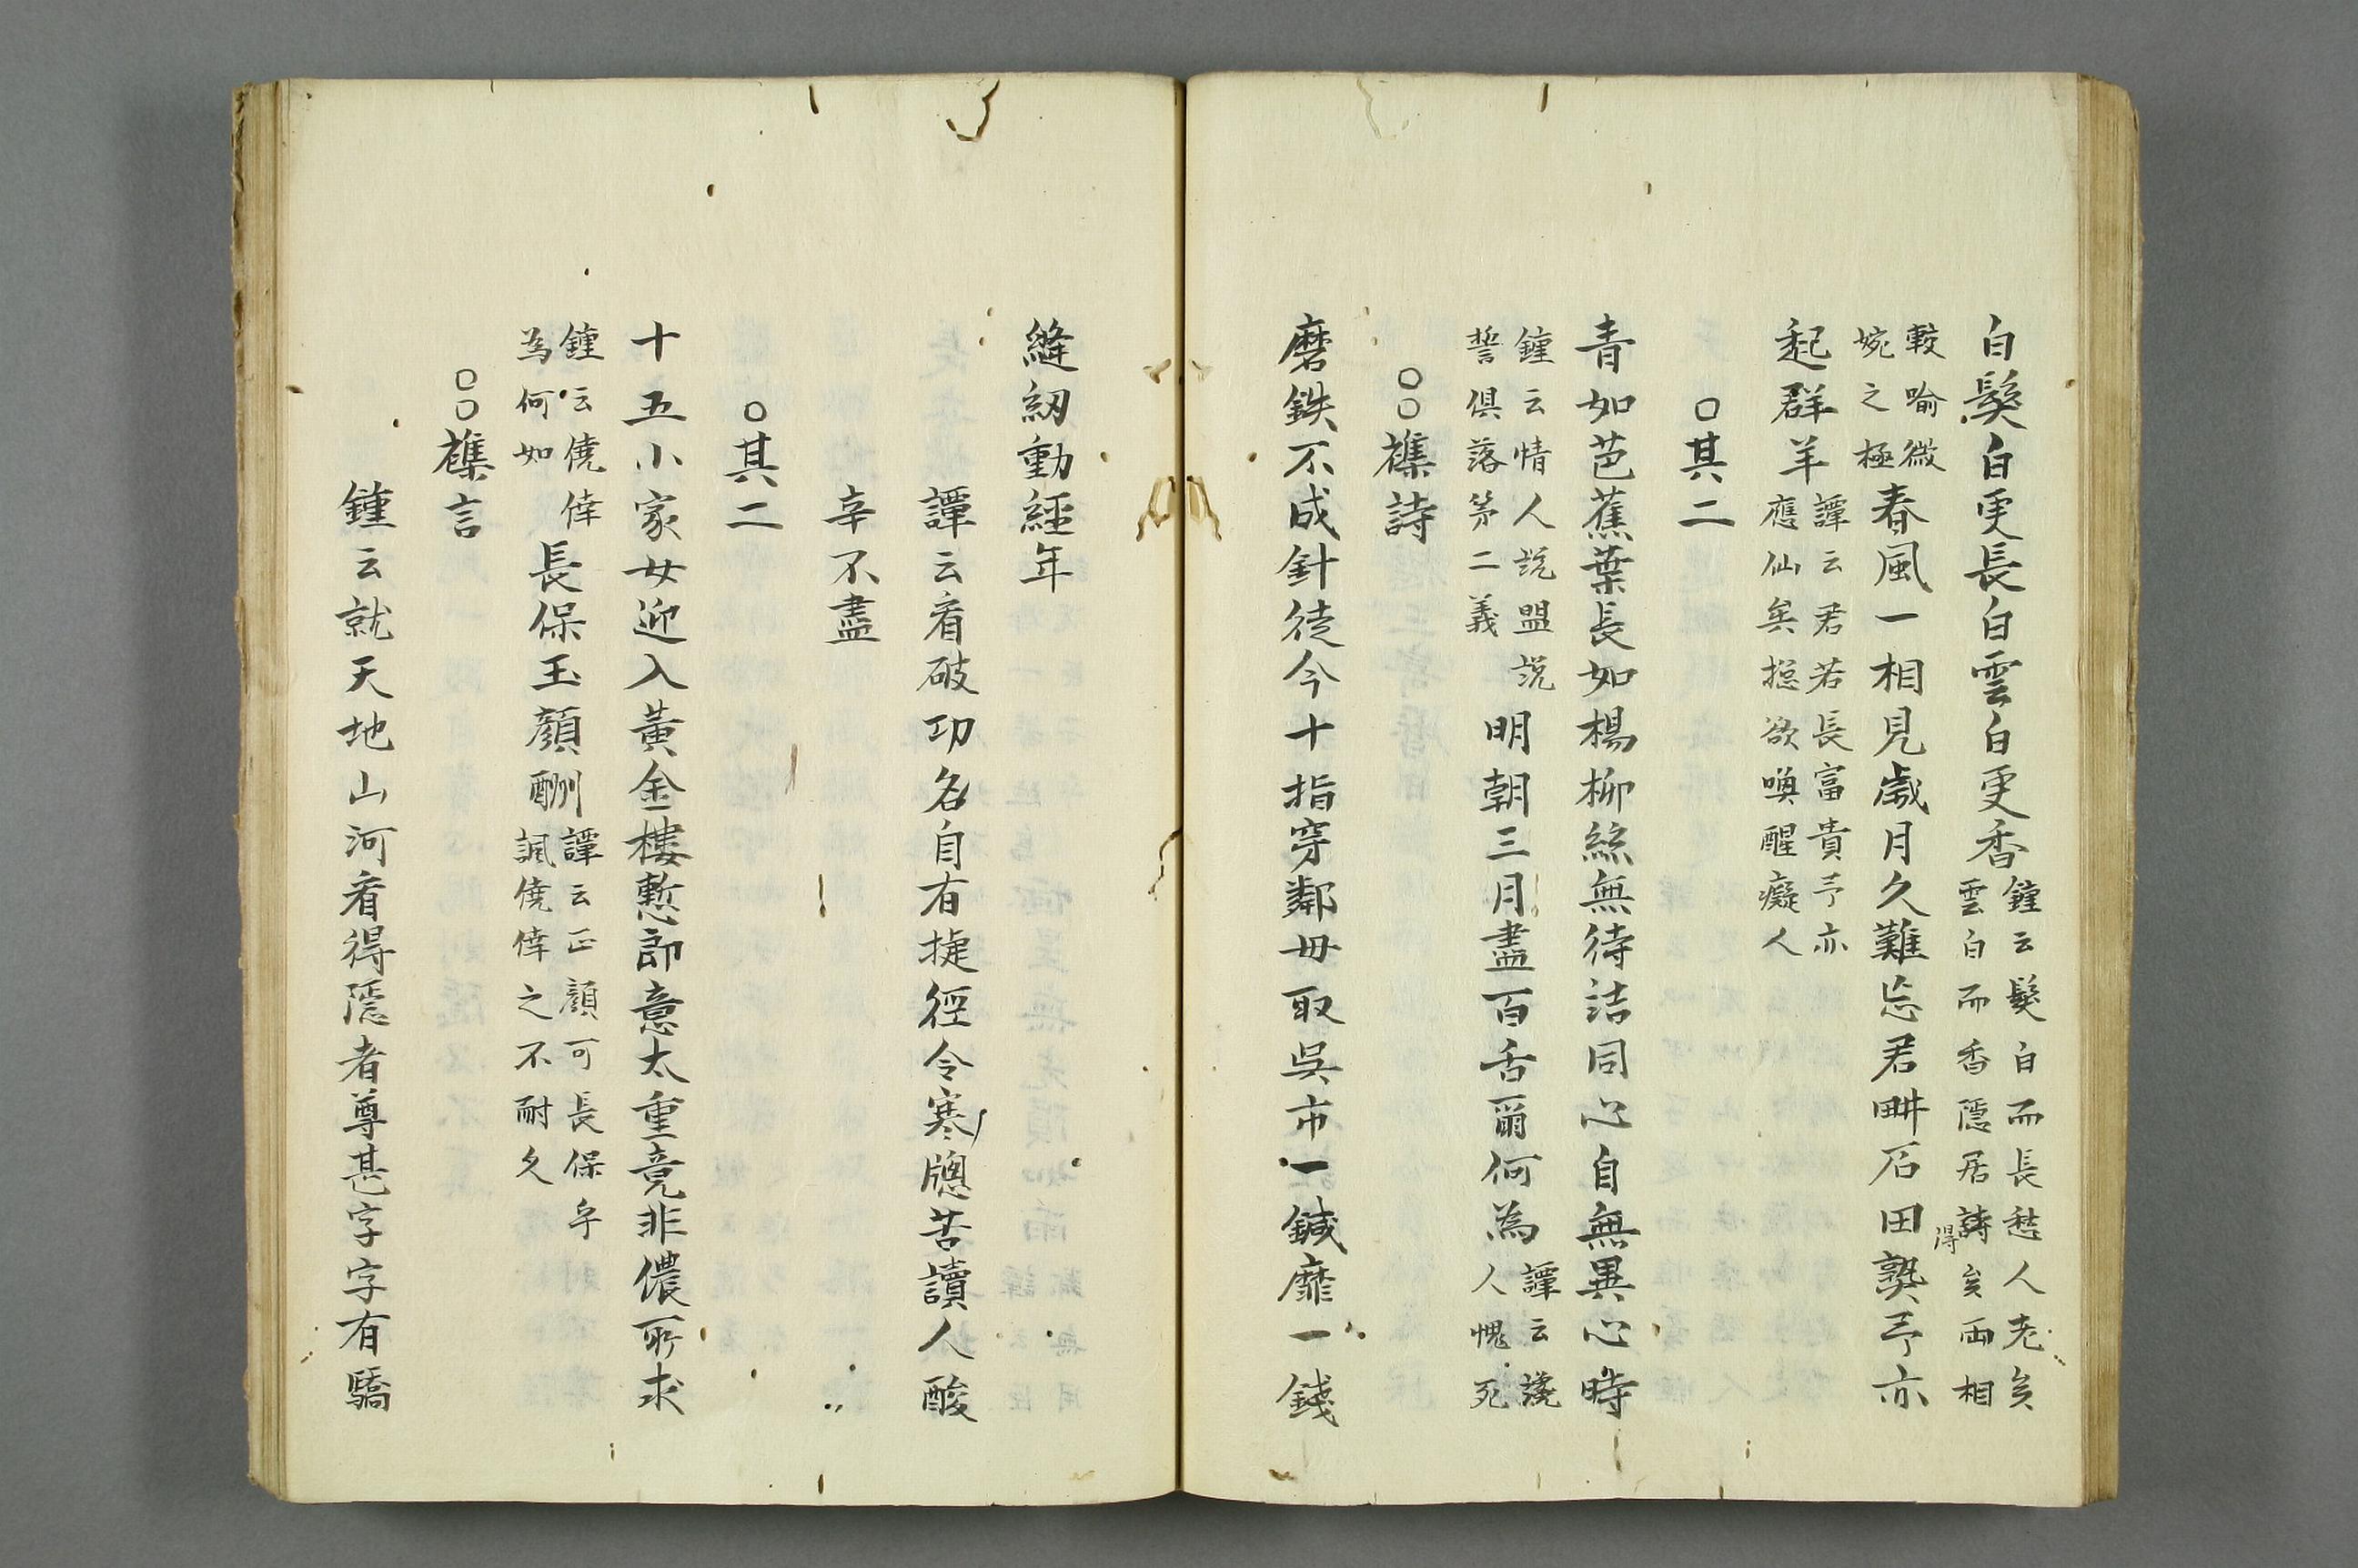 白髮白更長白雲白更香鍾云髮白而長愁人老矣
雲白而香隱居詩矣兩相
得
較喻微
婉之極春風一相見歲月久難忘君畊石田熟予亦
起群羊譚云君若長富貴予亦
應仙矣摠欲喚醒癡人
○其二
青如芭蕉葉長如楊柳絲無待詰同心自無異心時
鍾云情人説盟説
誓俱落第二義明朝三月盡百舌爾何為譚云讒
人愧死
○○襍詩
磨鉄不成針徒今十指穿鄰毋取吳市一鍼靡一錢
縫紉動經年
譚云看破功名自有捷徑令寒牕苦讀人酸
辛不盡
○其二
十五小家女迎入黃金樓慙郎意太重竟非儂所求
鍾云僥倖
為何如長保玉顏酬譚云正顏可長保乎
諷僥倖之不耐久
○○襍言
鍾云就天地山河看得隱者尊甚字字有驕